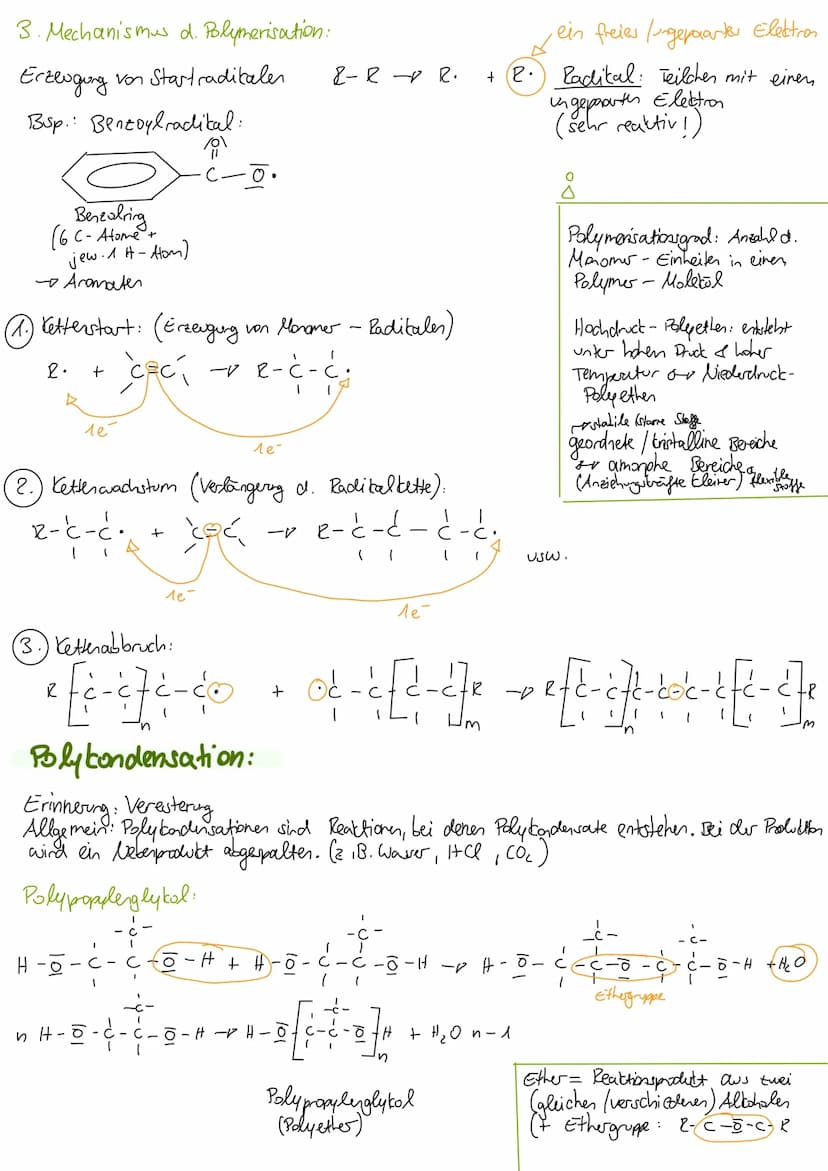 3. Mechanismus d. Polymerisation:
ein freies/ungepaartes Elektron
Erzeugung von Startradikalen R-R → R· + R· Radikal: Teilchen mit einem
ungepaarten Elektron
(sehr reaktiv!)
Bsp.: Benzoylradikal:
|O|
C-O·
Benzolring
(6 C-Atome +
jew. 1 H-Atom)
→ Aromaten
Polymerisationsgrad: Anzahl d.
Monomer-Einheiten in einem
Polymer-Molekül
Hochdruck-Polyethen: entsteht
unter hohem Druck & hoher
Temperatur ↔ Niederdruck-
Polyethen
→ stabile/starre Stoffe
geordnete/kristalline Bereiche
↔ amorphe Bereiche → flexible Stoffe
(Anziehungskräfte kleiner)
1. Kettenstart: (Erzeugung von Monomer-Radikalen)
R· + C=C → R-C-C·
1e⁻
1e⁻
2. Kettenwachstum (Verlängerung d. Radikalkette):
R-C-C· + C=C → R-C-C-C-C·
usw.
1e⁻
1e⁻
3. Kettenabbruch:
R[C-C]n C-C· + ·C-C[C-C]m R → R[C-C]n C-C-C-C[C-C]m R
Polykondensation:
Erinnerung: Veresterung
Allgemein: Polykondensationen sind Reaktionen, bei denen Polykondensate entstehen. Bei der Produktion
wird ein Nebenprodukt abgespalten. (z.B. Wasser, HCl, CO₂)
Polypropylenglykol:
-C- -C- -C- -C-
H-O-C-C-O-H + H-O-C-C-O-H → H-O-C-C-O-C-C-O-H + H₂O
Ethergruppe
-C- -C-
n H-O-C-C-O-H → H-O[C-C-O]n H + H₂O n-1
Polypropylenglykol
(Polyether)
Ether = Reaktionsprodukt aus zwei
(gleichen/verschiedenen) Alkoholen
(+ Ethergruppe: R-C-O-C-R